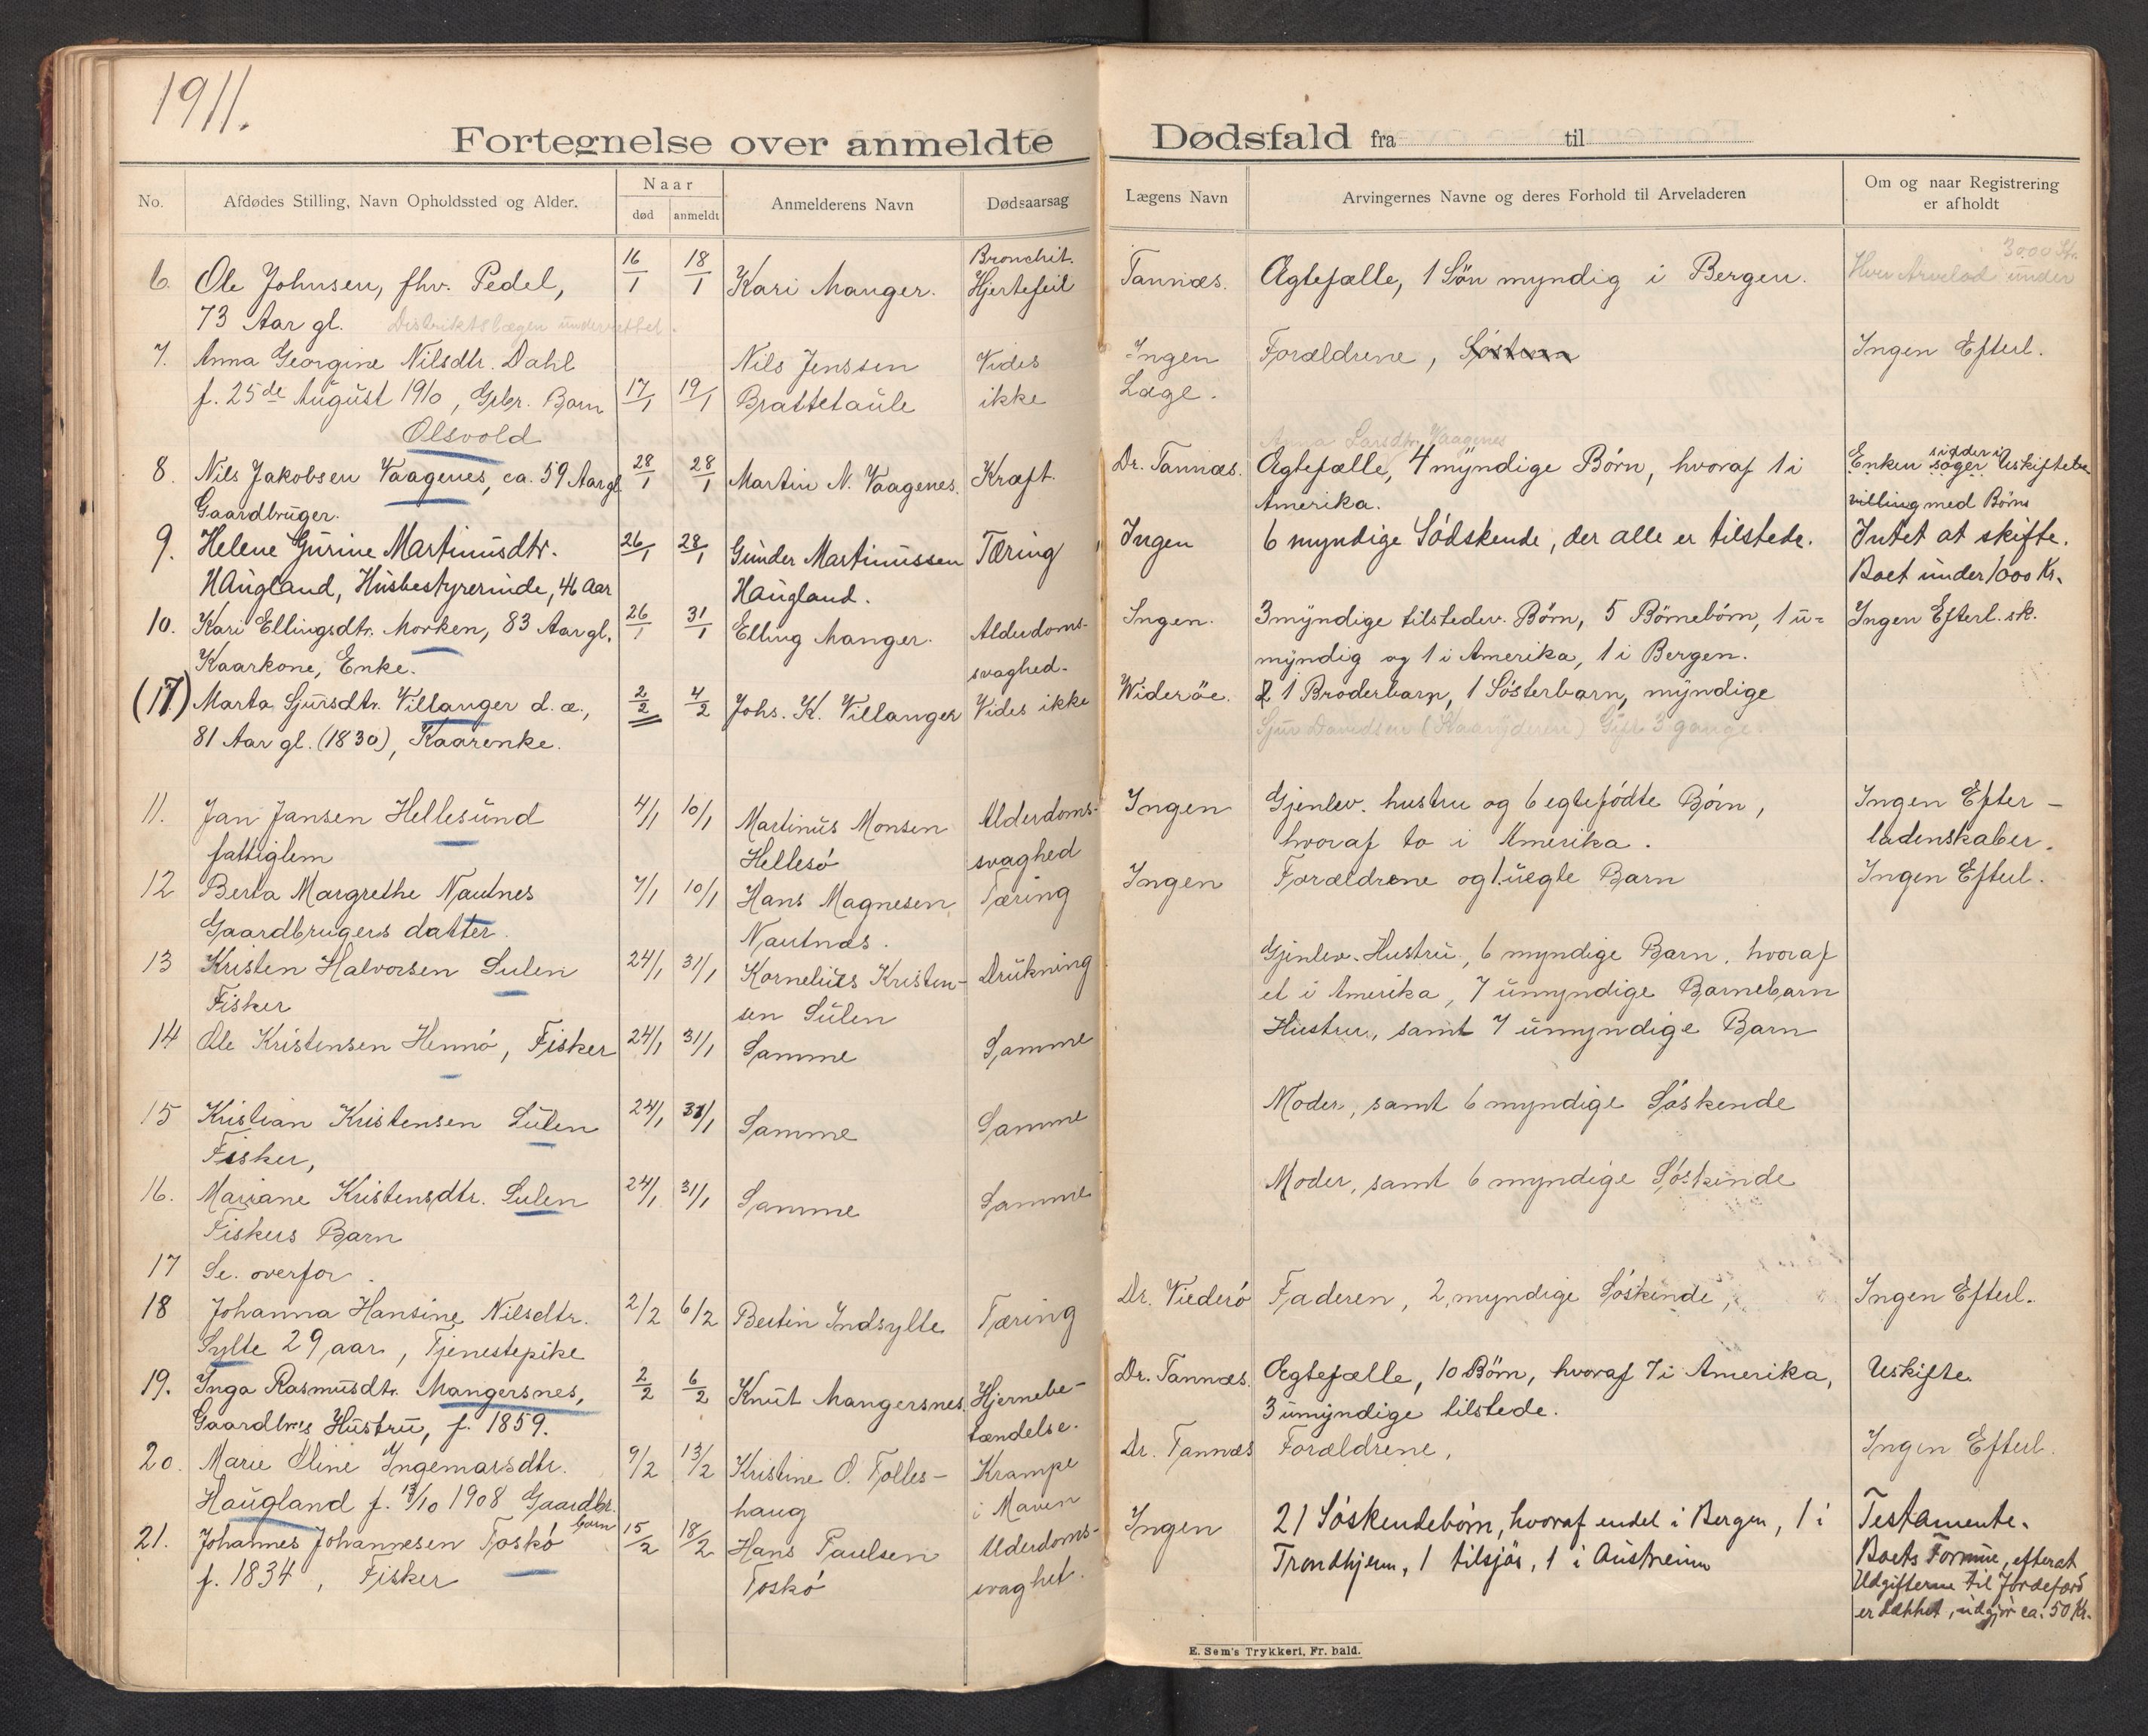 1911.
Fortegnelse over anmeldte Dødsfald fra til
No. Afdødes Stilling, Navn Opholdssted og Alder. Naar Anmelderens Navn Dødsaarsag Lægens Navn Arvingernes Navne og deres Forhold til Arveladeren Om og naar Registrering
død anmeldt er afholdt
Bronchit. 3000 Kr.
6. Ole Johnsen, fhv. Pedel, 16/1 18/1 Kari Manger. Hjertefeil Tannæs. Ægtefælle, 1 Søn myndig i Bergen. Hver Arvelod under
73 Aar gl. Distriktslægen underrettet.
7. Anna Georgine Nilsdtr. Dahl Nils Jenssen Vides Ingen Forældrene, Ingen Efterl.
f. 25de August 1910, Grbr. Barn 17/1 19/1 Brattetaule ikke Læge.
Olsvold Anna Larsdtr. Vaagenes sidder i
8. Nils Jakobsen Vaagenes, ca. 59 Aar gl 28/1 28/1 Martin N. Vaagenes. Kræft. Dr. Tannæs. Ægtefælle, 4 myndige Børn, hvoraf 1 i Enken søger Uskiftebe
Gaardbruger. Amerika. villing med Børns
9. Helene Gurine Martinusdtr. 26/1 28/1 Gunder Martinussen Tæring Ingen 6 myndige Sødskende, der alle er tilstede. Intet at skifte.
Haugland, Husbestyrerinde, 46 Aar Haugland. Boet under 1000 Kr.
10. Kari Ellingsdtr. Morken, 83 Aar gl, 26/1 31/1 Elling Manger. Alderdoms- Ingen. 3 myndige tilstedev. Børn, 5 Børnebørn, 1 u= Ingen Efterl. sk.
Kaarkone, Enke. svaghed. myndig og 1 i Amerika, 1 i Bergen.
(17.) Marta Sjursdtr. Villanger d. æ., 2/2 4/2 Johs. K. Villanger Vides ikke Widerøe. 1 Broderbarn, 1 Søsterbarn, myndige
81 Aar gl. (1830), Kaarenke. Sjur Davidsen Gift 3 gange.
11. Jan Jansen Hellesund 4/1 10/1 Martinus Monsen Alderdoms- Ingen Gjenlev. hustru og 6 egtefødte Børn, Ingen Efter-
fattiglem Hellesø svaghed hvoraf to i Amerika. ladenskaber.
12 Berta Margrethe Nautnes 7/1 10/1 Hans Magnesen Tæring Ingen Forældrene og 1 uegte Barn Ingen Efterl.
Gaardbrugers datter. Nautnæs.
13 Kristen Halvorsen Sulen 24/1 31/1 Kornelius Kristen- Drukning Gjenlev. Hustru, 6 myndige Barn, hvoraf
Fisker sen Sulen et i Amerika, 7 umyndige Barnebarn
14 Ole Kristensen Hennø, Fisker 24/1 31/1 Samme Samme Hustru, samt 7 umyndige Barn
15 Kristian Kristensen Sulen 24/1 31/1 Samme Samme Moder, samt 6 myndige Søskende
Fisker,
16. Mariane Kristensdtr. Sulen 24/1 31/1 Samme Samme Moder, samt 6 myndige Søskende
Fiskers Barn
17 Se. overfor.
18 Johanna Hansine Nilsdtr. 2/2 6/2 Bertin Indsylte Tæring Dr. Viederø Faderen, 2 myndige Søskende, Ingen Efterl.
Sylte 29 aar, Tjenestepike
19. Inga Rasmusdtr. Mangersnes, 2/2 6/2 Knut Mangersnes. Hjernebe- Dr. Tannæs. Ægtefælle, 10 Børn, hvoraf 7 i Amerika, Uskifte.
Gaardbrs Hustru, f. 1859. tændelse. 3 umyndige tilstede.
20. Marie Oline Ingemarsdtr. 9/2 13/2 Kristine O. Tolles- Krampe Dr. Tannæs Forældrene, Ingen Efterl.
Haugland f. /10 1908 Gaardbr. haug i Maven
barn
21. Johannes Johannesen Toskø 15/2 18/2 Hans Paulsen Alderdoms- Ingen 21 Søskendebørn, hvoraf endel i Bergen, 1 i Testamente.
f. 1834, Fisker Toskø svaghet. Trondhjem, 1 tilsjøs, 1 i Austreim Boets Formue, efterat
Udgifterne til Jordefærd
er dækket, udgjør ca. 50 Kr.
E. Sem's Trykkeri, Fr. hald.